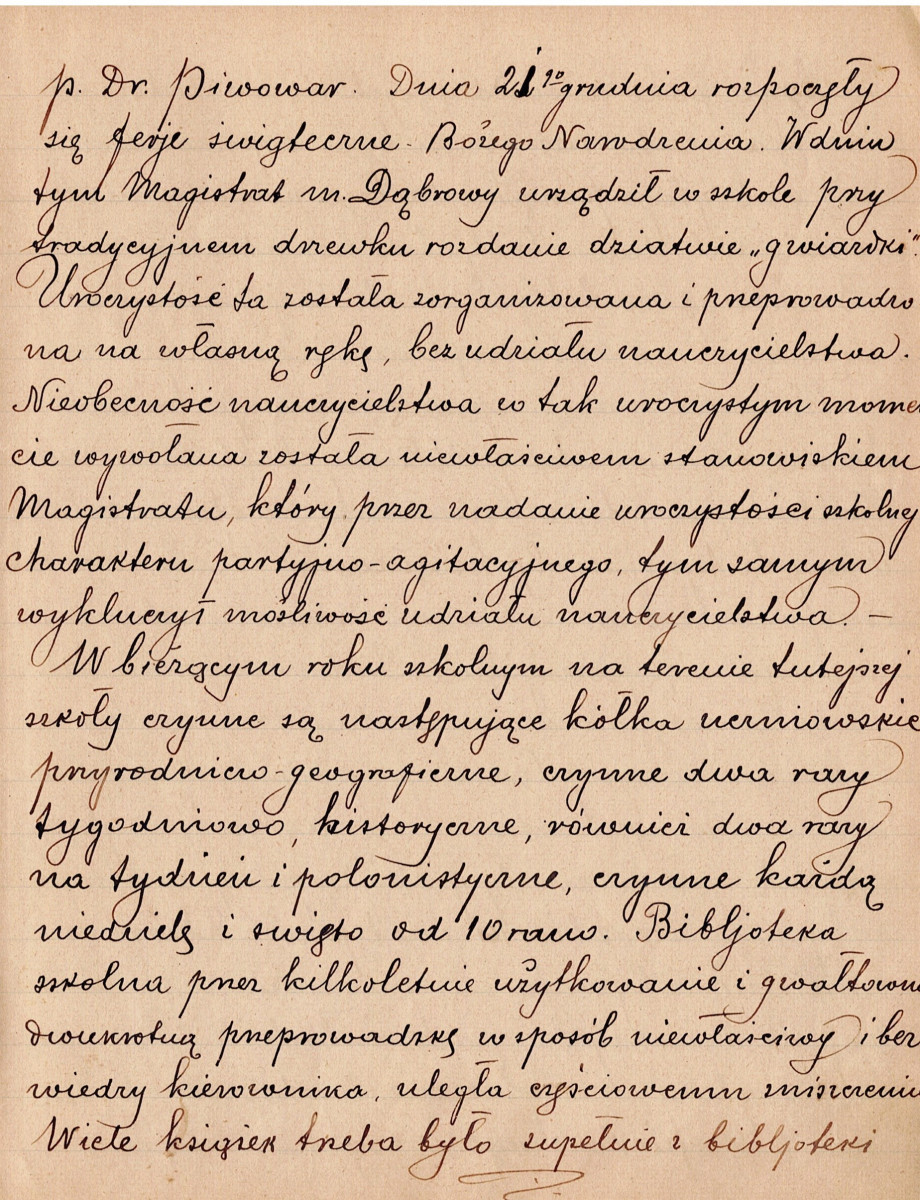 p. Dr. Piwowar. Dnia 21go grudnia rozpoczęły
się ferje świąteczne Bożego Narodzenia. W dniu
tym Magistrat m. Dąbrowy urządził w szkole przy
tradycyjnem drzewku rozdanie dziatwie „gwiazdki".
Uroczystość ta została zorganizowana i przeprowadzo
na na własną rękę, bez udziału nauczycielstwa.
Nieobecność nauczycielstwa w tak uroczystym mome
cie wywołana została niewłaściwem stanowiskiem
Magistratu, który przez nadanie uroczystości szkolnej
charakteru partyjno-agitacyjnego, tym samym
wykluczył możliwość udziału nauczycielstwa. —
W bieżącym roku szkolnym na terenie tutejszej
szkoły czynne są następujące kółka uczniowskie
przyrodniczo-geograficzne, czynne dwa razy
tygodniowo, historyczne, również dwa razy
na tydzień i polonistyczne, czynne każdą
niedzielę i święto od 10 rano. Bibljoteka
szkolna przez kilkoletnie użytkowanie i gwałtowną
dwukrotną przeprowadzkę w sposób niewłaściwy i bez
wiedzy kierownika, uległa częściowemu zniszczeniu
Wiele książek trzeba było zupełnie z bibljoteki